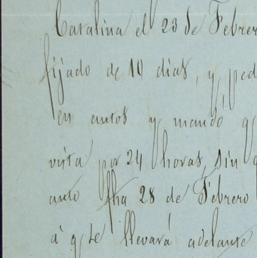 Catalina el 23 de Febrer
fijado de 10 dias, y ped
en autos y mandó q
vista por 24 horas, sin q
auto fha 28 de Febrero
á q se llevará adelante